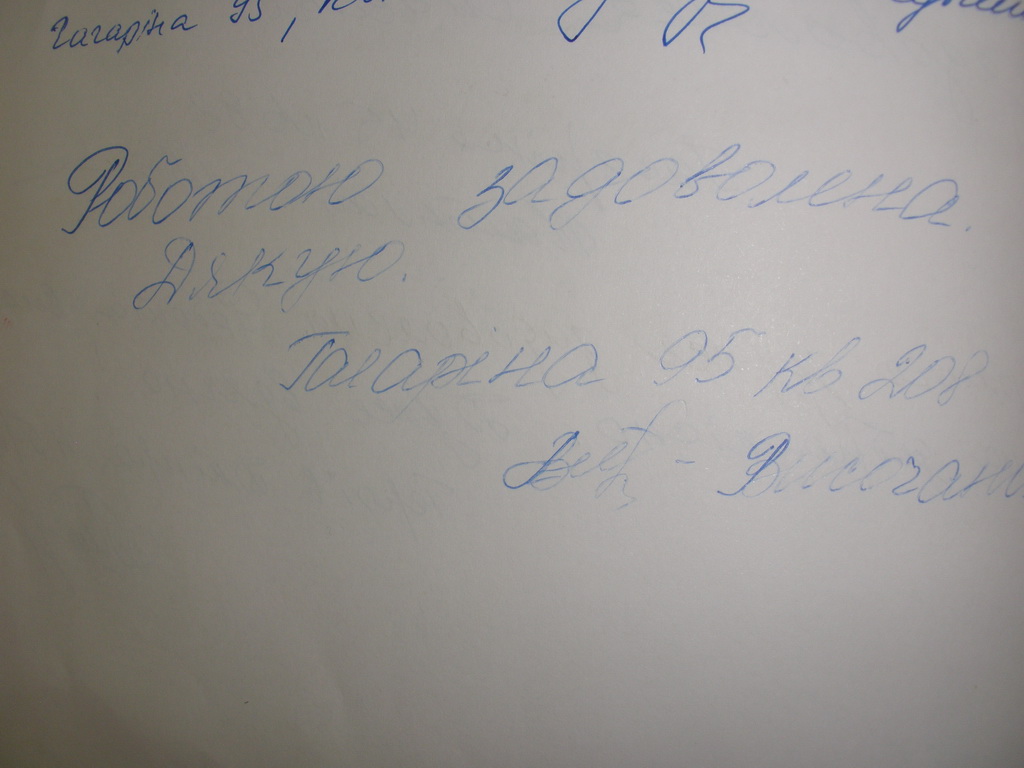 Гагаріна 95,
Роботою задоволена.
Дякую.
Гагаріна 95 кв 208
- Височан